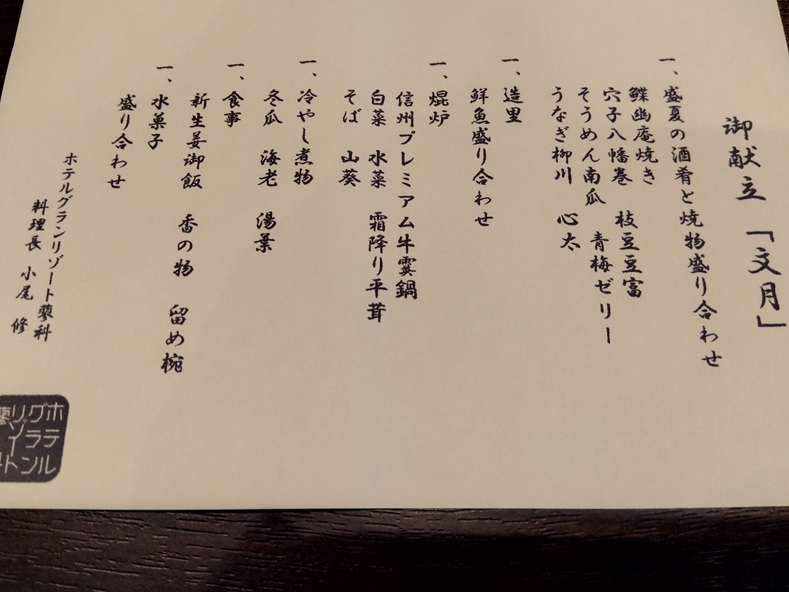 御献立「文月」
一、盛夏の酒肴と焼物盛り合わせ
鰈幽庵焼き
穴子八幡巻　枝豆豆富
そうめん南瓜　青梅ゼリー
うなぎ柳川　心太
一、造里
鮮魚盛り合わせ
一、焜炉
信州プレミアム牛霙鍋
白菜　水菜　霜降り平茸
そば　山葵
一、冷やし煮物
冬瓜　海老　湯葉
一、食事
新生姜御飯　香の物　留め椀
一、水菓子
盛り合わせ
ホテルグランリゾート蓼科
料理長　小尾　修
ホテル
グララン
リゾート